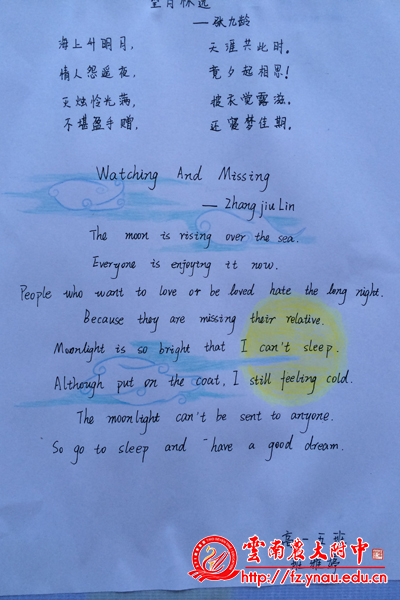 望月怀远
——张九龄
海上升明月, 天涯共此时。
情人怨遥夜, 竟夕起相思!
灭烛怜光满, 披衣觉露滋。
不堪盈手赠, 还寝梦佳期。
Watching And Missing
— Zhang jiu Lin
The moon is rising over the sea.
Everyone is enjoying it now.
People who want to love or be loved hate the long night.
Because they are missing their relative.
Moonlight is so bright that I can't sleep.
Although put on the coat, I still feeling cold.
The moonlight can't be sent to anyone.
So go to sleep and have a good dream.
高一五班
雲南農大附中
http://fz.ynau.edu.cn